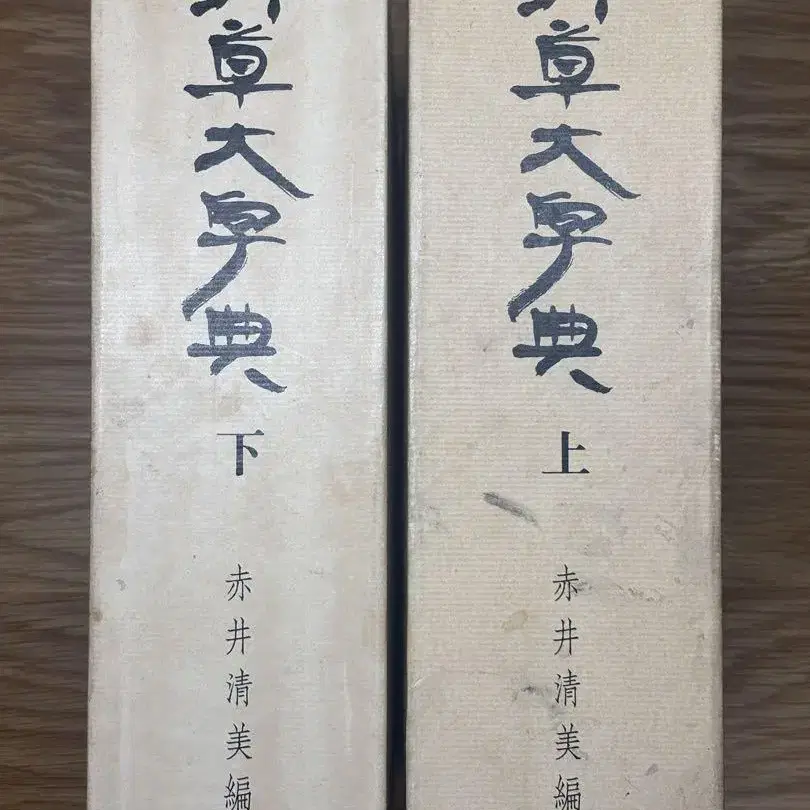 草大字典
上
赤井清美編
草大字典
下
赤井清美編